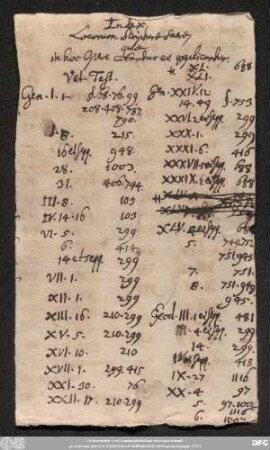 Index
Locorum Scripturae Sacrae
quae
in hoc Opere citantur et explicantur.
Vet. Test.
Gen. I. 1 §. 98. 76. 99
208. 408. 787
790.
1. 8. 215.
16 et sqq. 948.
28. 1003.
31. 406. 794.
III. 8. 103
IV. 14. 16 103
VI. 5. 299
6. 414
14 et seqq. 299
VII. 1. 299
XII. 1. 299
XIII. 16. 210. 299
XV. 5 210. 299
XVI. 10. 210
XVII. 1. 299. 415
XXI. 30. 76
XXII. 17. 210. 299
XL. 688
XLI.
Gen. XXIV. 12
14. 49 §. 753
XXVI. 2 et sqq. 299
XXX. 1. 299
XXXI. 6. 416
XXXVII. et sqq. 688
XXXIX. et sqq. 688
XLV. 4 et sqq. 688
5.
751. 945
7. 751.
8. 751. 949
945.
Exod. III. 1 et sqq. 481
4 et sqq. 299
14. 299
413
IX. 27 1116
XX. 4 97
5. 97. 1002
6. 1116